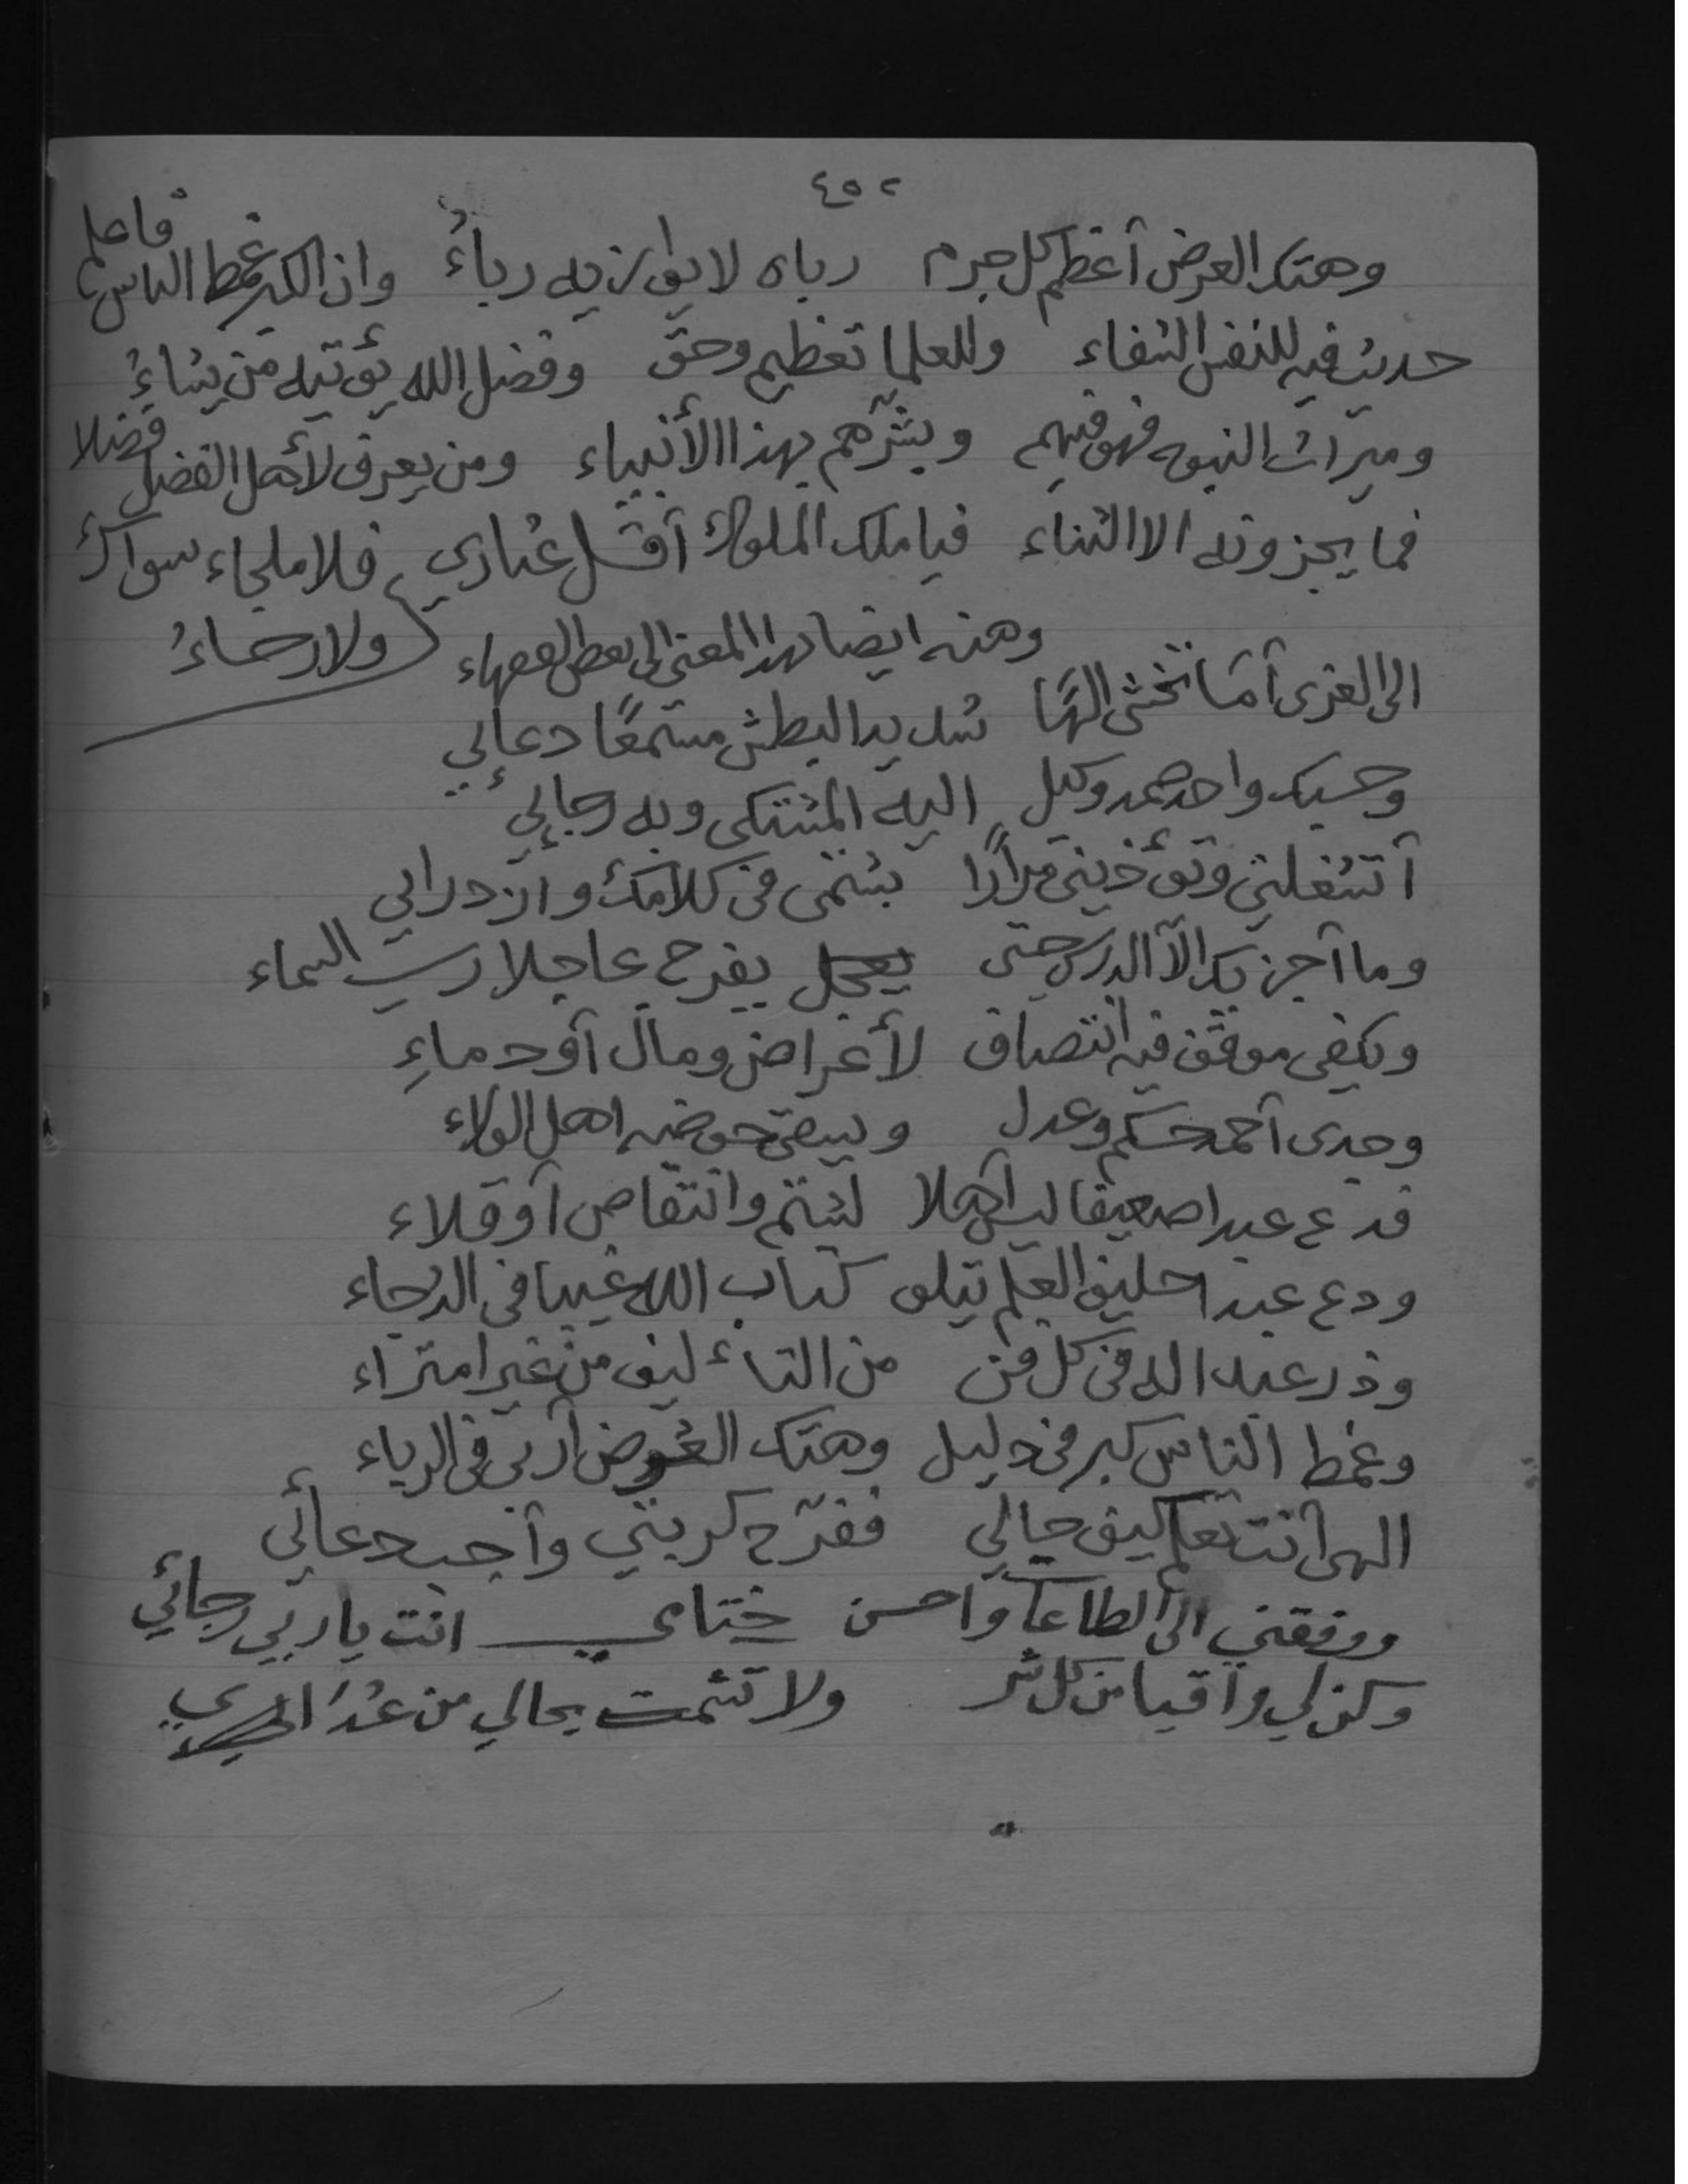 ٤٥٢
وهتك العرض أعظم كل جرم رباه لا يوازيه رباءُ وان الكبر غمط الناس فاعلم
حديث فيه للنفس الشفاء وللعلما تعظيم وحق وفضل الله يؤتيه من يشاءُ
وميراث النبوه فهو فيهم وبشرهم بهذا الأنبياء ومن يعرف لأهل الفضل فضلا
فما يجزونه الا الثناء فيا ملك الملوك أقل عثاري فلا ملجاء سواك
ولا رجاءُ
ومنه ايضا لهذا المعنى الى بعض الفقهاء
الى العزى أمَا تخشى الهًا شديد البطش مستمعًا دعائي
وحسبك واحد صمد وكيل اليه المشتكى وبه رجائي
أتشغلني وتؤذيني مرارًا بشتمى فى كلامك وازدرائي
وما أجزيك الا الدرس حتى يعجل يفرج عاجلا رب السماء
ويكفى موقف فيه انتصاف لأغراض ومال أو دماءِ
وجدى أحمد حكم وعدل ويسقى حوضه اهل الولاء
فدع عبدا ضعيفا ليس أهلا لشتم وانتقاص أو قلاء
ودع عبدا حليف العلم يتلو كتاب الله غيبا فى الدجاء
وذر عبدا له فى كل فن من التأليف من غير امتراء
وغمط الناس كبر فى دليل وهتك العرض أربى فى الرباء
الهى أنت تعلم كيف حالي ففرّج كربتي وأجب دعائي
ووفقني الى الطاعات واحسن ختامي انت يا ربي رجائي
وكن لي واقيا من كل شر ولا تشمت بحالي من عُدَ